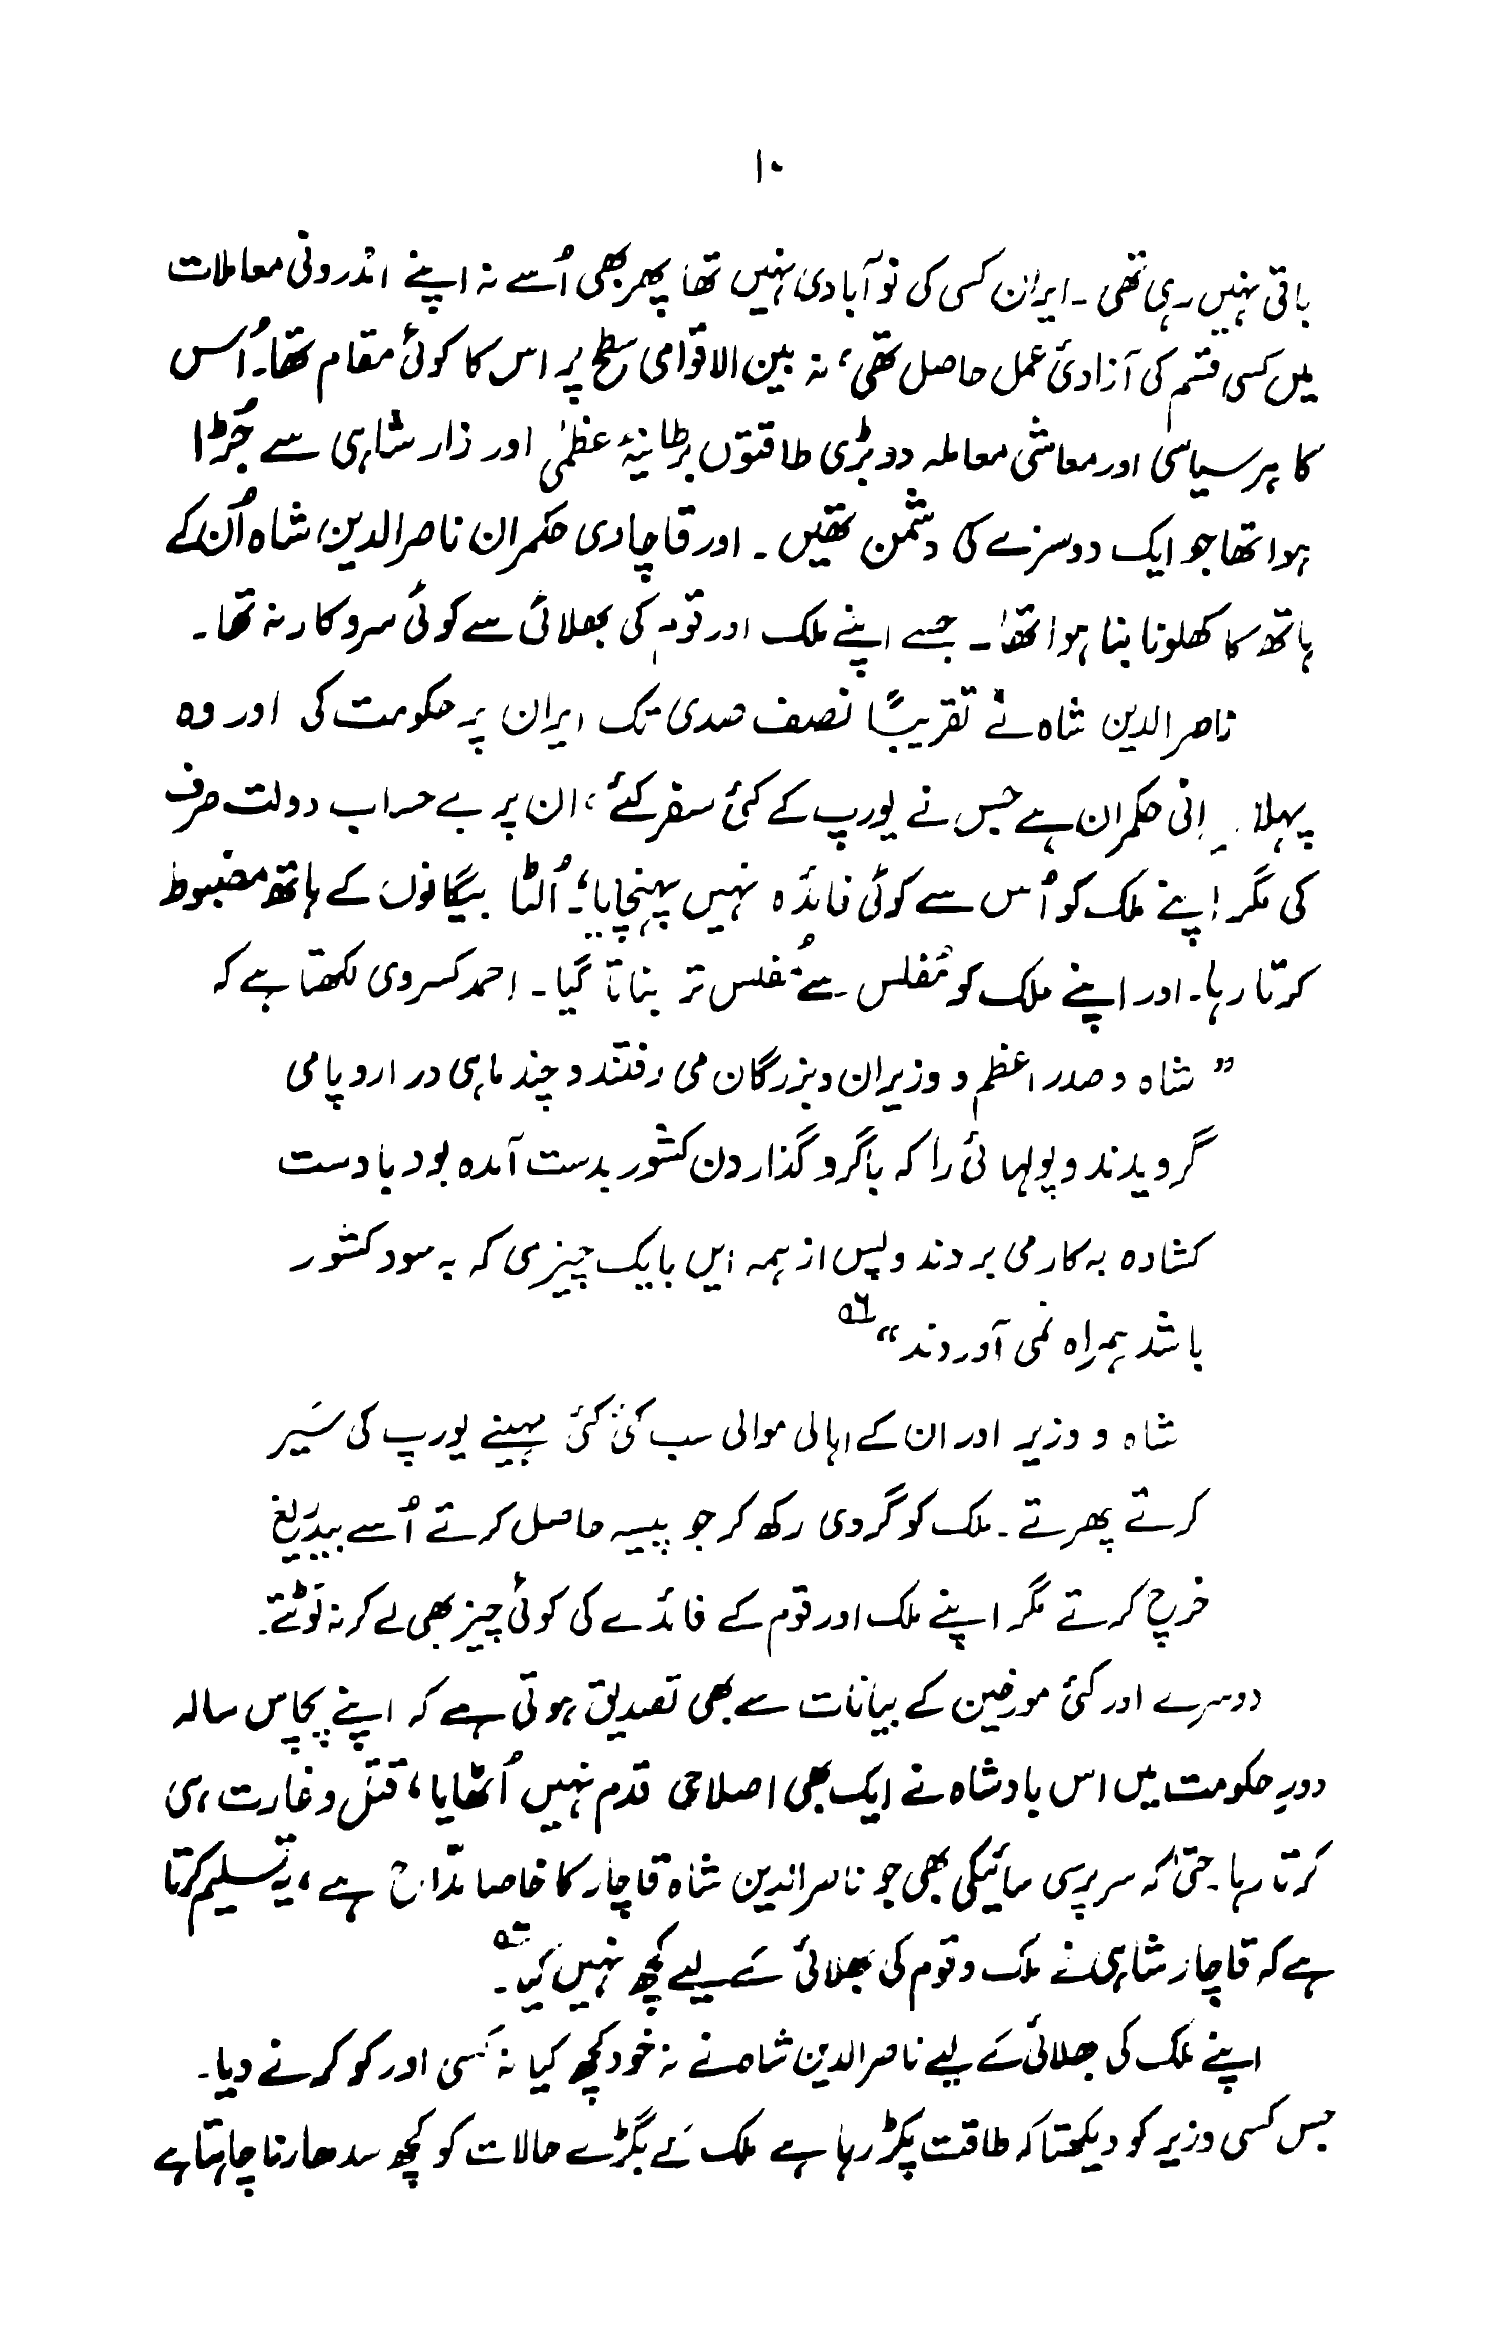 ۱۰
باقی نہیں رہی تھی ۔ ایران کسی کی نو آبادی نہیں تھا پھر بھی اُسے نہ اپنے اندرونی معاملات
میں کسی قسم کی آزادیٔ عمل حاصل تھی، نہ بین الاقوامی سطح پر اس کا کوئی مقام تھا۔ اُس
کا ہر سیاسی اور معاشی معاملہ دو بڑی طاقتوں برطانیۂ عظمٰی اور زار شاہی سے جُڑا
ہوا تھا جو ایک دوسرے کی دشمن تھیں ۔ اور قاچاری حکمران ناصرالدین شاہ اُن کے
ہاتھ کا کھلونا بنا ہوا تھا ۔ جسے اپنے ملک اور قوم کی بھلائی سے کوئی سروکار نہ تھا ۔
ناصرالدین شاہ نے تقریباً نصف صدی تک ایران پر حکومت کی اور وہ
پہلا حکمران ہے جس نے یورپ کے کئی سفر کئے، ان پر بے حساب دولت صرف
کی مگر اپنے ملک کو اُس سے کوئی فائدہ نہیں پہنچایا، اُلٹا بیگانوں کے ہاتھ مضبوط
کرتا رہا ۔ اور اپنے ملک کو مُفلس سے مُفلس تر بناتا گیا ۔ احمد کسروی لکھتا ہے کہ
” شاہ و صدر اعظم و وزیران و بزرگان می رفتند و چند ماہی در اروپا می
گردیدند و پولہائی را کہ باگرو گذاردن کشور بدست آمدہ بود با دست
کشادہ بہ کار می بردند و پس از ہمہ ایں با یک چیزی کہ بہ سود کشور
باشد ہمراہ نمی آوردند“
شاہ و وزیر اور ان کے اہالی موالی سب کئی کئی مہینے یورپ کی سَیر
کرتے پھرتے ۔ ملک کو گروی رکھ کر جو پیسہ حاصل کرتے اُسے بیدریغ
خرچ کرتے مگر اپنے ملک اور قوم کے فائدے کی کوئی چیز بھی لے کر نہ لَوٹتے ۔
دوسرے اور کئی مورخین کے بیانات سے بھی تصدیق ہوتی ہے کہ اپنے پچاس سالہ
دورِ حکومت میں اس بادشاہ نے ایک بھی اصلاحی قدم نہیں اُٹھایا، قتل و غارت ہی
کرتا رہا ۔ حتیٰ کہ سر پرسی سائیکی بھی جو ناصرالدین شاہ قاچار کا خاصا مدّاح ہے، یہ تسلیم کرتا
ہے کہ قاچار شاہی نے ملک و قوم کی بھلائی کے لیے کچھ نہیں کیا ۔
اپنے ملک کی بھلائی کے لیے ناصرالدین شاہ نے نہ خود کچھ کیا نہ کسی اور کو کرنے دیا ۔
جس کسی وزیر کو دیکھتا کہ طاقت پکڑ رہا ہے ملک کے بگڑے حالات کو کچھ سدھارنا چاہتا ہے